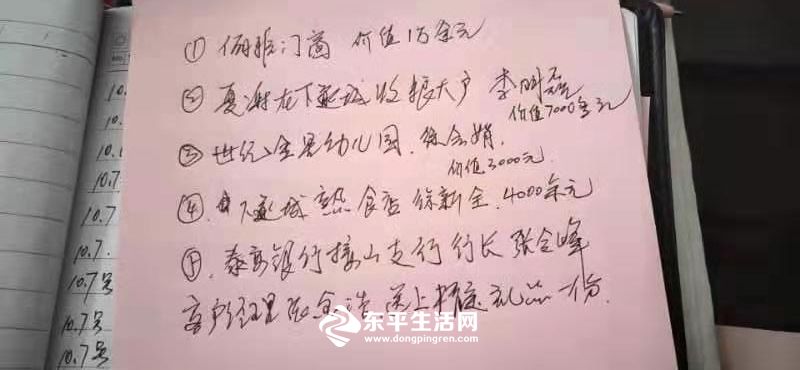 ① 门商 价值1万余元
② 夏谢在下 城收粮大户 李
价值7000余元
③ 世纪金贝幼儿园. 徐会娟.
价值3000元
④. 下 城熟食店 徐新全. 4000余元
⑤. 泰安银行接山支行 行长 张合峰
客户经理 送上 礼品一份.
10.
10.
10.
10.
10.7
10.7
10.7.
10.7号
10.7号
10.7号
东平生活网
www.dongpingren.com